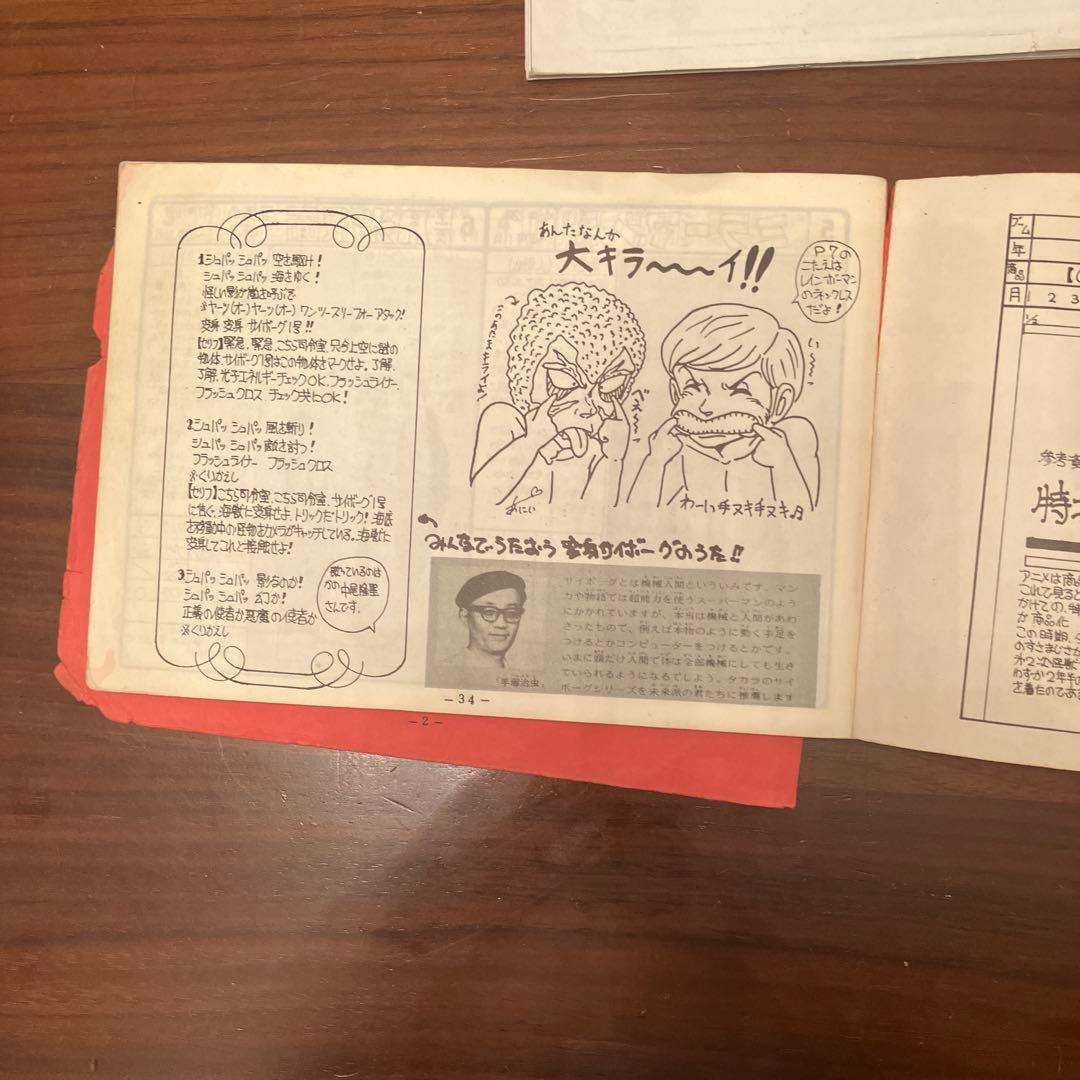 1シュパッ シュパッ 空を駆け!
シュパッ シュパッ 海をゆく!
怪しい影が嵐を呼ぶぞ
※ヤーッ(オー) ヤーッ(オー) ワンツースリーフォー アタック!
変身 変身 サイボーグ1号!!
【セリフ】緊急、緊急、こちら司令室、只今上空に謎の
物体、サイボーグ1号はこの物体をマークせよ、了解、
了解、光子エネルギーチェックOK、フラッシュライナー、
フラッシュクロス チェック共にOK!
2シュパッ シュパッ 風を斬り!
シュパッ シュパッ 敵を討つ!
フラッシュライナー フラッシュクロス
※くりかえし
【セリフ】こちら司令室、こちら司令室、サイボーグ1号
に告ぐ、海獣に変身せよ、トリックだトリック!海底
を移動中の怪物をカメラがキャッチしている。海獣に
変身してこれと接触せよ!
3シュパッ シュパッ 影なのか!
シュパッ シュパッ 幻か!
正義の使者か悪魔の使者か
※くりかえし
歌っているのは
かの中尾隆聖
さんです。
あんたなんか
大キラ〜〜〜イ!!
P7の
こたえは
レインボーマン
のネックレス
だよ!
べえ〜〜
い〜〜
あにい
わーい チヌキチヌキ♪
みんなでうたおう 変身サイボーグのうた!!
サイボーグとは機械人間といういみです。マン
ガや物語では超能力を使うスーパーマンのよう
にかかれていますが、本当は機械と人間があわ
さったもので、例えば本物のように動く手足を
つけるとかコンピューターをつけるとかです。
いまに頭だけ人間で体は全部機械にしても生き
ていられるようになるでしょう。タカラのサイ
ボーグシリーズを未来派の君たちに推薦します
「手塚治虫」
—34—
—2—
ブーム
年
商品
月 1 2 3
½
アニメは商品
これで見ると
この時期、
のすさまじさが
わずか2年半の